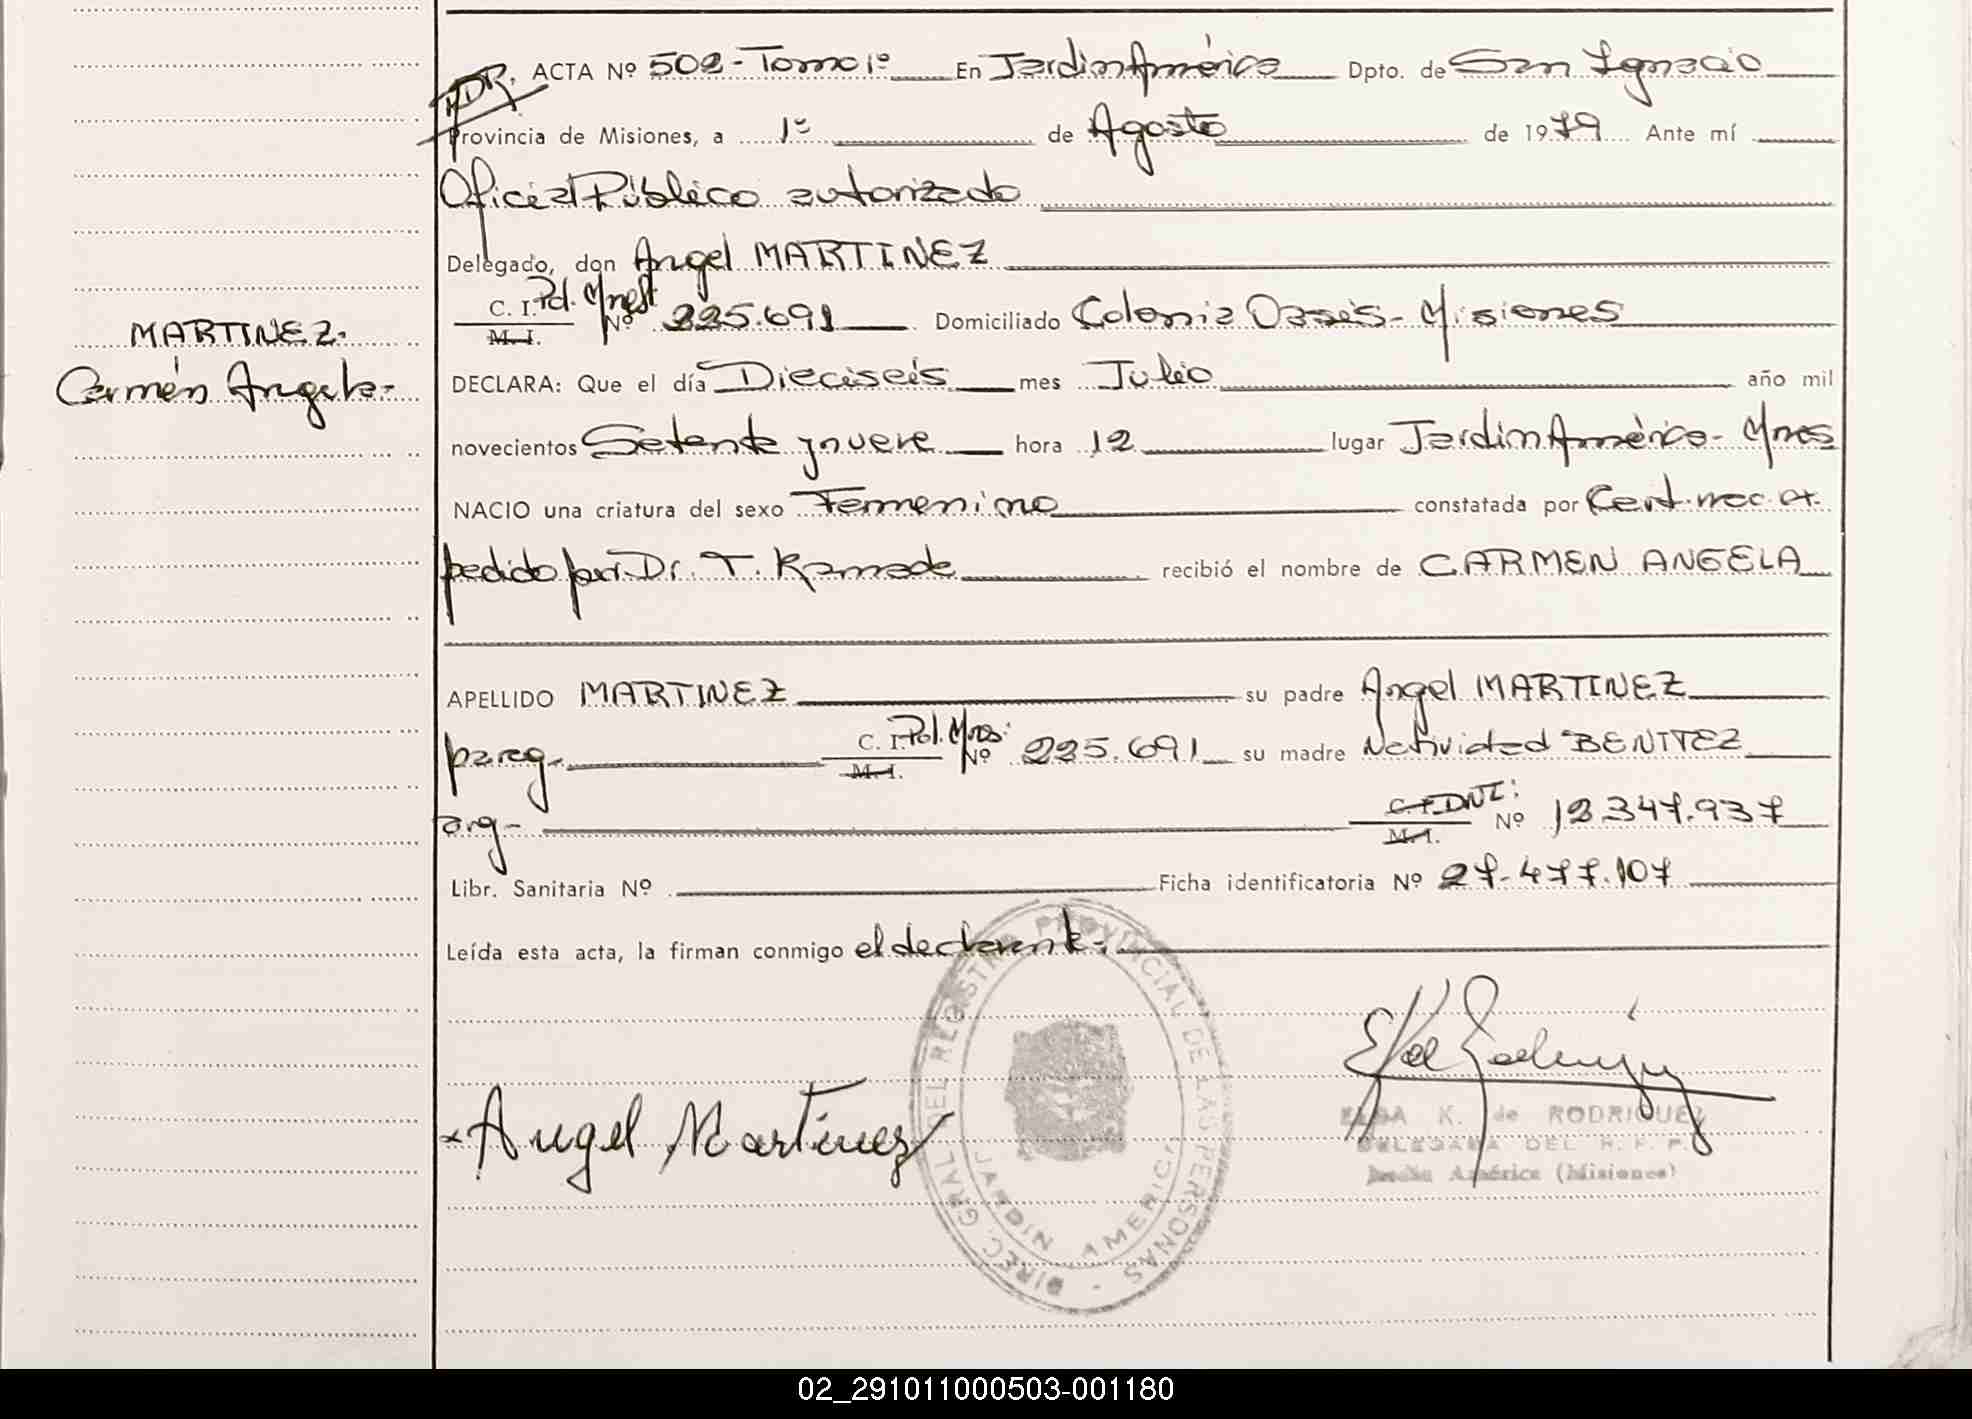 HDR. ACTA Nº 502 - Tomo 1º En Jardin América Dpto. de San Ignacio
Provincia de Misiones, a 1º de Agosto de 1979 Ante mí
Oficial Público autorizado
Delegado, don Angel MARTINEZ
C. I. Pol. Mnes
M. I. Nº 225.691 Domiciliado Colonia Oasis - Misiones
MARTINEZ.
Carmén Angela-
DECLARA: Que el día Dieciseis mes Julio año mil
novecientos Setenta y nueve hora 12 lugar Jardin América - Mnes
NACIO una criatura del sexo Femenino constatada por Cert. mec. ex
pedido por Dr. T. Ramade recibió el nombre de CARMEN ANGELA
APELLIDO MARTINEZ su padre Angel MARTINEZ
parag. C. I. Pol. Mnes. M. I. Nº 225.691 su madre Natividad BENITEZ
arg- C. I. DNI: M. I. Nº 12.347.937
Libr. Sanitaria Nº Ficha identificatoria Nº 27.477.107
Leída esta acta, la firman conmigo el declarante.
DIREC. GRAL. DEL REGISTRO PROVINCIAL DE LAS PERSONAS -
JARDIN AMERICA
Angel Martinez
ELSA K. de RODRIGUEZ
DELEGADA DEL R. P. P.
Jardín América (Misiones)
02_291011000503-001180